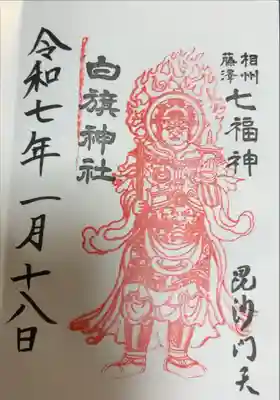 相州
藤澤
七福神
毘沙门天
白旗神社
令和七年一月十八日